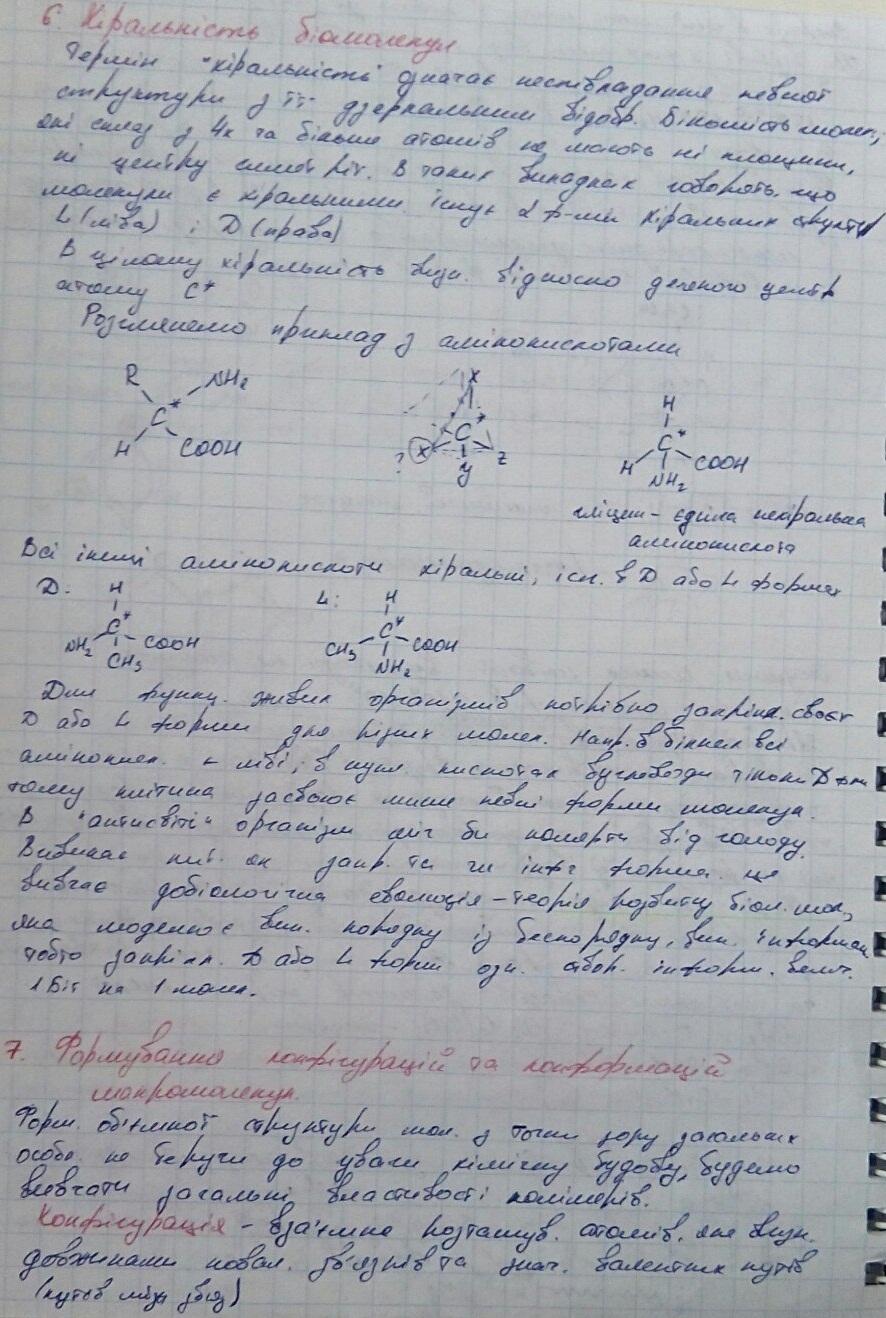 6. Кіральність біомолекул
Термін "кіральність" означає неспівпадання певної
структури з її дзеркальним відобр. Більшість молек,
які склад з 4х та більше атомів не мають ні площини,
ні центру симетрії. В таких випадках говорять, що
молекули є кіральними. Існує 2 ф-ми кіральних структур
L (ліва) і D (права)
В цілому кіральність визн. відносно деякого центр
атому C*
Розглянемо приклад з амінокислотами
R NH2
C*
H COOH
x
C*
x z
?
y
H
C*
H COOH
NH2
гліцин - єдина некіральна
амінокислота
Всі інші амінокислоти кіральні, існ. в D або L формах
D: H
C*
NH2 COOH
CH3
L: H
C*
CH3 COOH
NH2
Для функц. живих організмів потрібно закріпл. своєї
D або L форми для різних молек. Напр. в білках всі
амінокисл. - ліві, в нукл. кислотах вуглеводи тільки D
тому клітина засвоює лише певні форми молекул.
В "антисвіті" організм міг би померти від голоду.
Виникає пит. як закр. та чи інша форма. це
вивчає добіологічна еволюція - теорія розвитку біол. мол,
яка моделює вин. порядку із беспорядку, вин. інформац.
тобто закріпл. D або L форм озн. створ. інформ. велич.
1 біт на 1 молек.
7. Формування конфігурацій та конформацій
макромолекул.
Форм. об'ємної структури мол. з точки зору загальних
особл. не беручи до уваги хімічну будову, будемо
вивчати загальні властивості полімерів.
Конфігурація - вза'ємне розташув. атомів, яке визн.
довжинами ковал. зв'язків та знач. валентних кутів
(кутів між зв'яз)